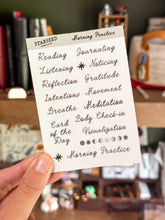 STARSEED Morning Practice
Reading Journaling
Listening Noticing
Reflection Gratitude
Intentions Movement
Breathe Meditation
Card of the Day Body Check-in
Visualization
Morning Practice